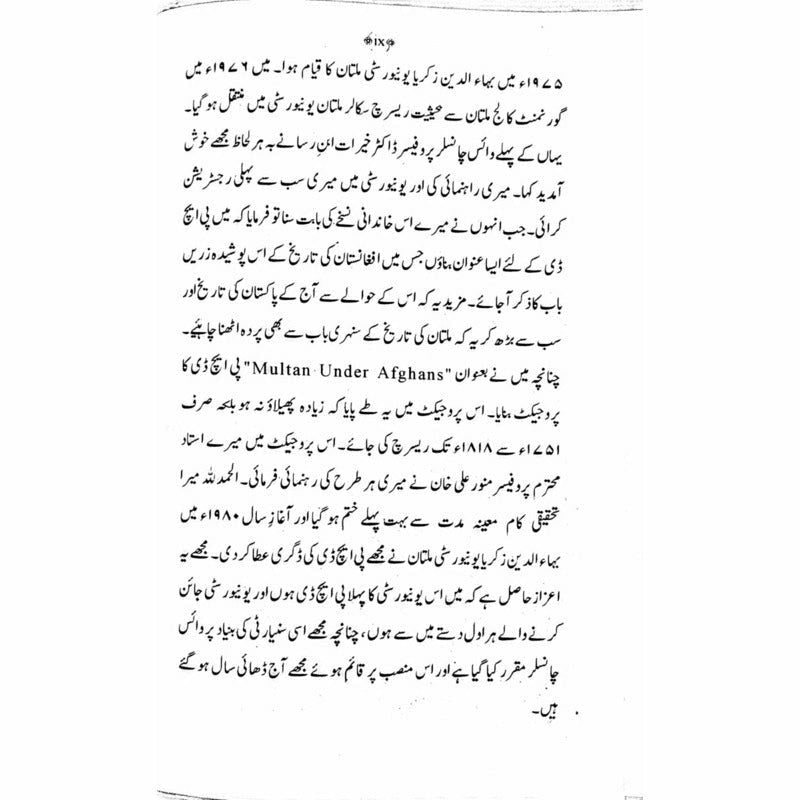 ﴿IX﴾
۱۹۷۵ء میں بہاء الدین زکریا یونیورسٹی ملتان کا قیام ہوا۔ میں ۱۹۷۶ء میں
گورنمنٹ کالج ملتان سے حیثیت ریسرچ سکالر ملتان یونیورسٹی میں منتقل ہو گیا۔
یہاں کے پہلے وائس چانسلر پروفیسر ڈاکٹر خیرات ابنِ رسا نے بہ ہر لحاظ مجھے خوش
آمدید کہا۔ میری راہنمائی کی اور یونیورسٹی میں میری سب سے پہلی رجسٹریشن
کرائی۔ جب انہوں نے میرے اس خاندانی نسخے کی بابت سنا تو فرمایا کہ میں پی ایچ
ڈی کے لئے ایسا عنوان بناؤں جس میں افغانستان کی تاریخ کے اس پوشیدہ زریں
باب کا ذکر آ جائے۔ مزید یہ کہ اس کے حوالے سے آج کے پاکستان کی تاریخ اور
سب سے بڑھ کر یہ کہ ملتان کی تاریخ کے سنہری باب سے بھی پردہ اٹھنا چاہئیے۔
چنانچہ میں نے بعنوان "Multan Under Afghans" پی ایچ ڈی کا
پروجیکٹ بنایا۔ اس پروجیکٹ میں یہ طے پایا کہ زیادہ پھیلاؤ نہ ہو بلکہ صرف
۱۷۵۱ء سے ۱۸۱۸ء تک ریسرچ کی جائے۔ اس پروجیکٹ میں میرے استاد
محترم پروفیسر منور علی خان نے میری ہر طرح کی رہنمائی فرمائی۔ الحمد للہ میرا
تحقیقی کام معینہ مدت سے بہت پہلے ختم ہو گیا اور آغازِ سال ۱۹۸۰ء میں
بہاء الدین زکریا یونیورسٹی ملتان نے مجھے پی ایچ ڈی کی ڈگری عطا کر دی۔ مجھے یہ
اعزاز حاصل ہے کہ میں اس یونیورسٹی کا پہلا پی ایچ ڈی ہوں اور یونیورسٹی جائن
کرنے والے ہراول دستے میں سے ہوں، چنانچہ مجھے اسی سنیارٹی کی بنیاد پر وائس
چانسلر مقرر کیا گیا ہے اور اس منصب پر قائم ہوئے مجھے آج ڈھائی سال ہو گئے
ہیں۔